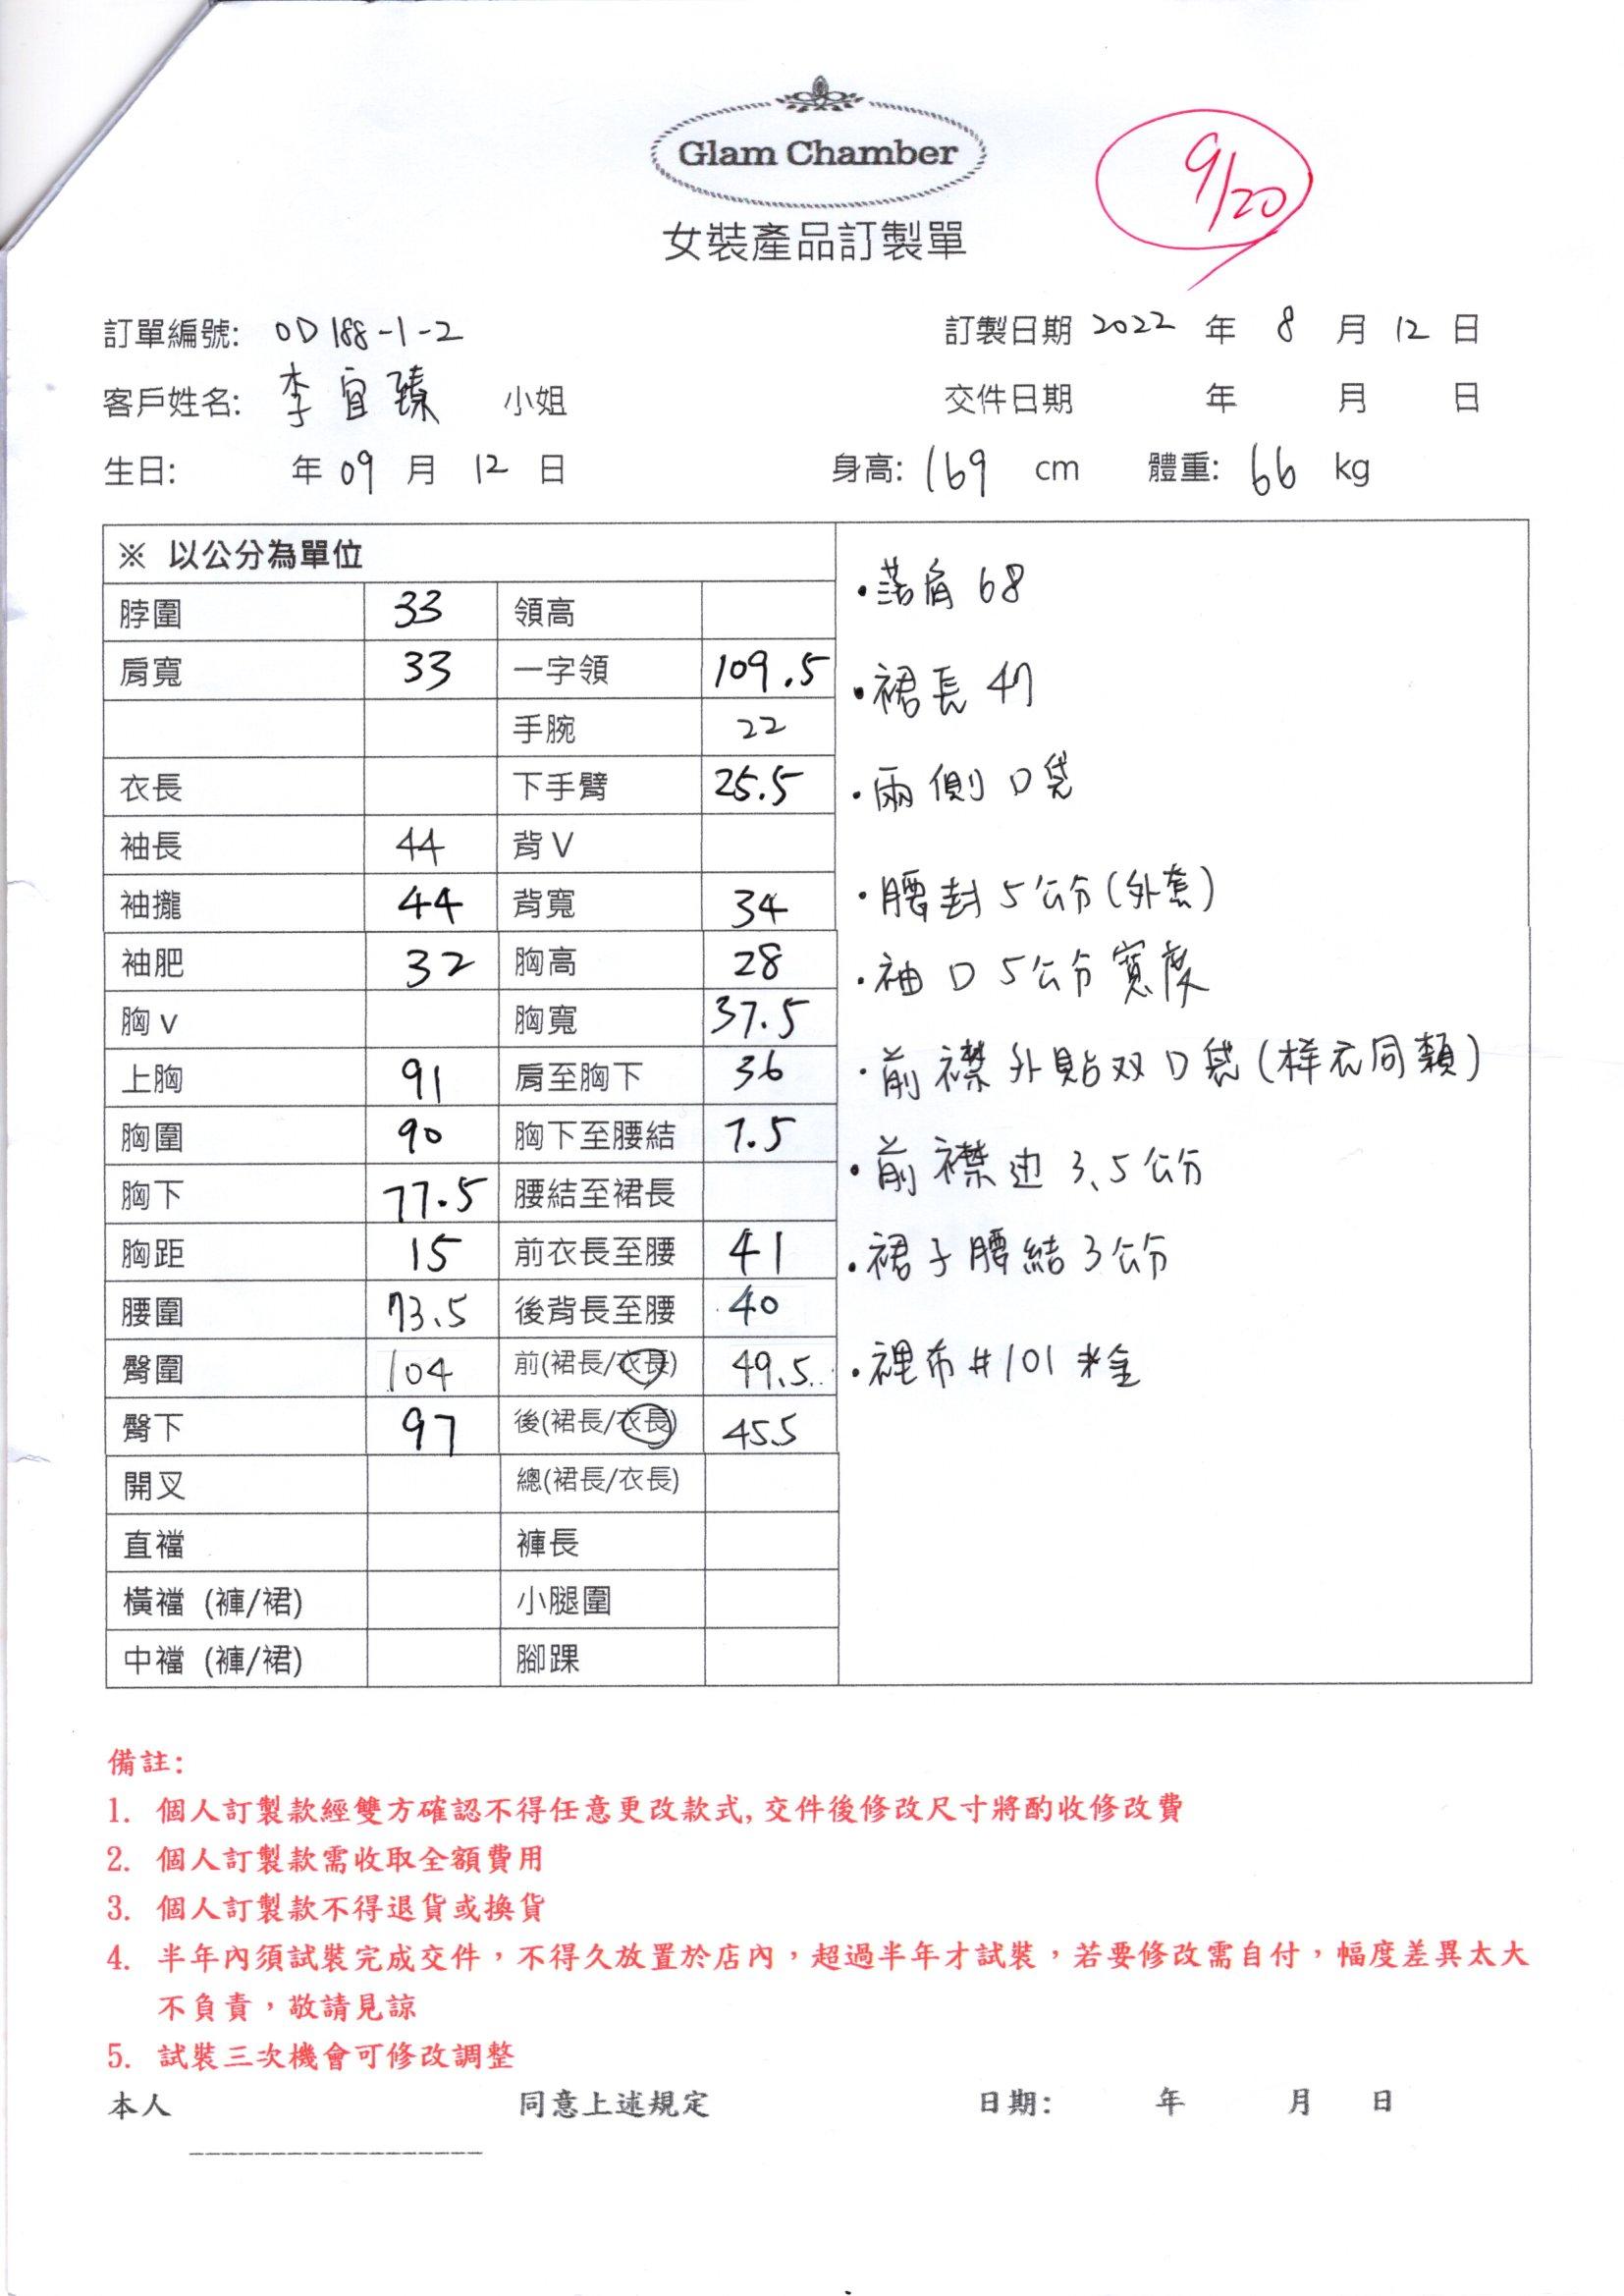 Glam Chamber
9/20
女裝產品訂製單
訂單編號: OD188-1-2 訂製日期 2022 年 8 月 12 日
客戶姓名: 李宜臻 小姐 交件日期 年 月 日
生日: 年 09 月 12 日 身高: 169 cm 體重: 66 kg
※ 以公分為單位
脖圍 33 領高
肩寬 33 一字領 109.5
手腕 22
衣長 下手臂 25.5
袖長 44 背V
袖攏 44 背寬 34
袖肥 32 胸高 28
胸v 胸寬 37.5
上胸 91 肩至胸下 36
胸圍 90 胸下至腰結 7.5
胸下 77.5 腰結至裙長
胸距 15 前衣長至腰 41
腰圍 73.5 後背長至腰 40
臀圍 104 前(裙長/衣長) 49.5
臀下 97 後(裙長/衣長) 45.5
開叉 總(裙長/衣長)
直襠 褲長
橫襠 (褲/裙) 小腿圍
中襠 (褲/裙) 腳踝
·落肩 68
·裙長 47
·兩側口袋
·腰封 5公分(外套)
·袖口 5公分寬度
·前襟外貼双口袋(样衣同類)
·前襟边 3.5公分
·裙子腰結3公分
·裡布#101
備註:
1. 個人訂製款經雙方確認不得任意更改款式, 交件後修改尺寸將酌收修改費
2. 個人訂製款需收取全額費用
3. 個人訂製款不得退貨或換貨
4. 半年內須試裝完成交件，不得久放置於店內，超過半年才試裝，若要修改需自付，幅度差異太大
不負責，敬請見諒
5. 試裝三次機會可修改調整
本人 同意上述規定 日期: 年 月 日